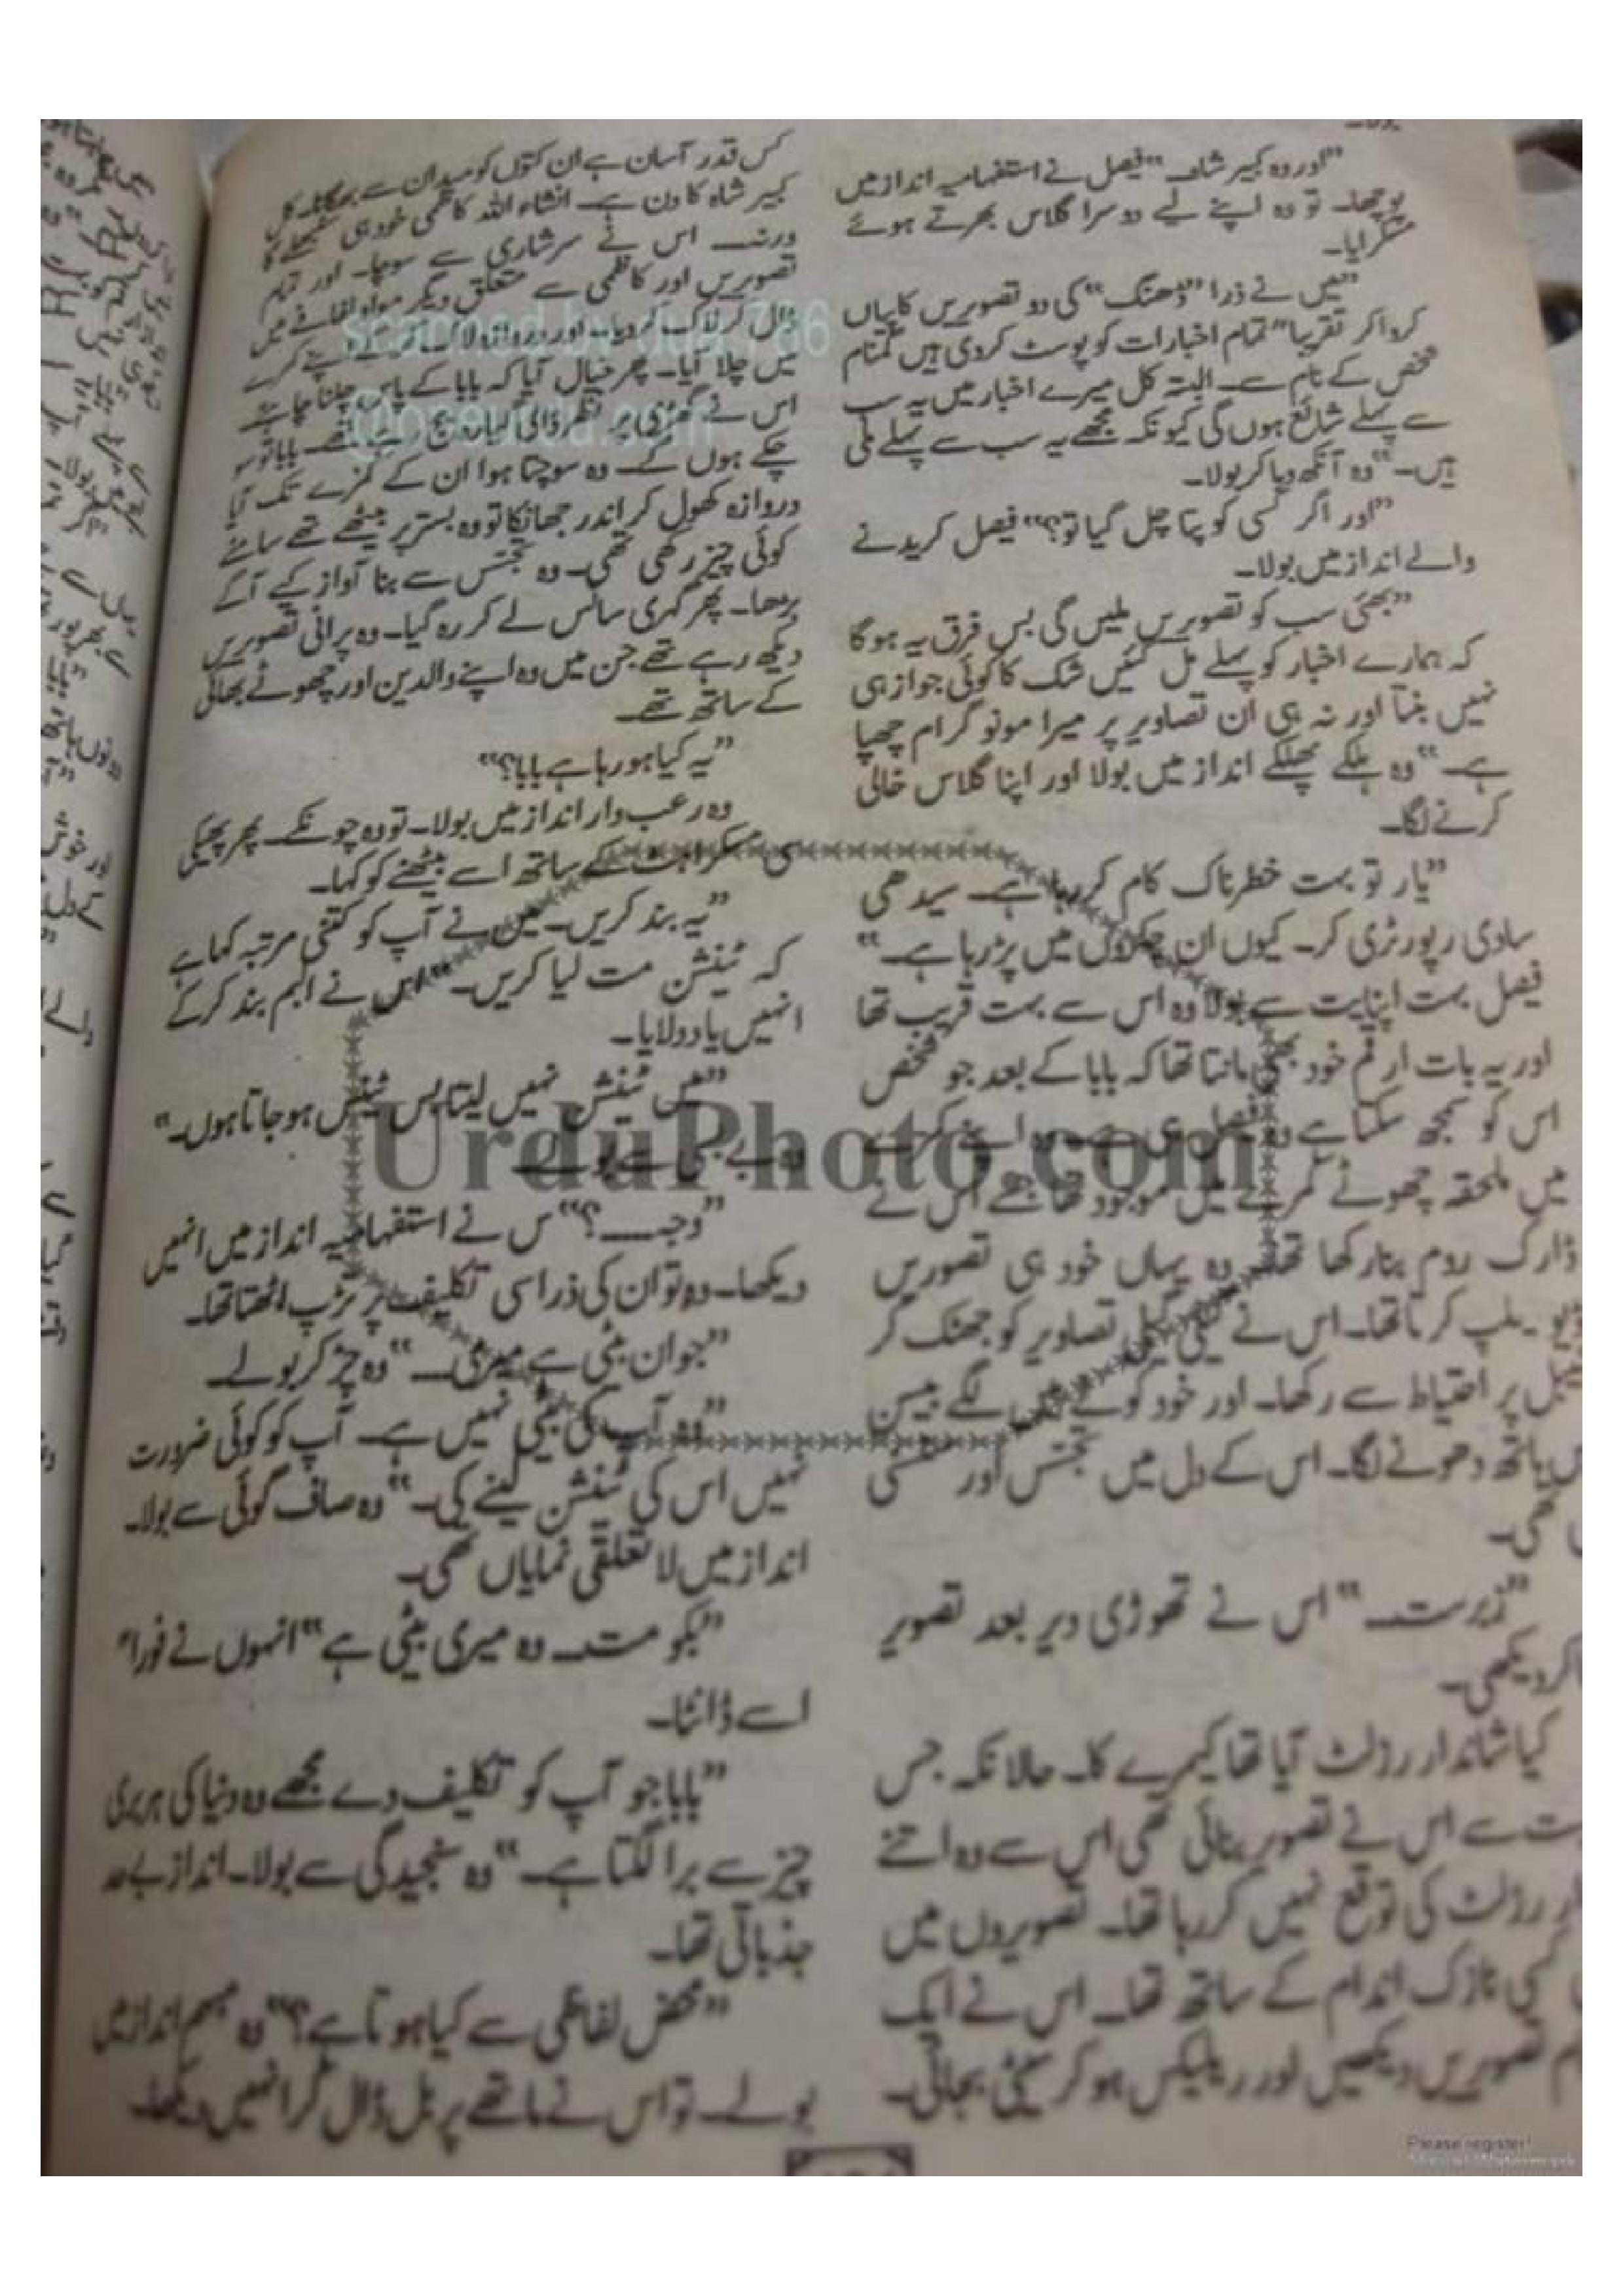 بولا۔
"اور وہ کبیر شاہ" فیصل نے استفہامیہ انداز میں
پوچھا۔ تو وہ اپنے لیے دوسرا گلاس بھرتے ہوئے
مسکرایا۔
"میں نے ذرا "ڈھنگ" کی دو تصویریں کاپیاں
کروا کر تقریبا" تمام اخبارات کو پوسٹ کر دی ہیں گمنام
شخص کے نام سے۔ البتہ کل میرے اخبار میں یہ سب
سے پہلے شائع ہوں گی کیونکہ مجھے یہ سب سے پہلے ملی
ہیں۔" وہ آنکھ دبا کر بولا۔
"اور اگر کسی کو پتا چل گیا تو؟" فیصل کریدنے
والے انداز میں بولا۔
"بھئی سب کو تصویریں ملیں گی بس فرق یہ ہو گا
کہ ہمارے اخبار کو پہلے مل گئیں شک کا کوئی جواز ہی
نہیں بنتا اور نہ ہی ان تصاویر پر میرا مونوگرام چھپا
ہے۔" وہ ہلکے پھلکے انداز میں بولا اور اپنا گلاس خالی
کرنے لگا۔
"یار تو بہت خطرناک کام کر رہا ہے۔ سیدھی
سادی رپورٹری کر۔ کیوں ان چکروں میں پڑ رہا ہے۔"
فیصل بہت اپنایت سے بولا وہ اس سے بہت قریب تھا
اور یہ بات ارقم خود بھی مانتا تھا کہ بابا کے بعد جو شخص
اس کو سمجھ سکتا ہے وہ فیصل ہی ہے۔ وہ اپنے کمرے
میں ملحقہ چھوٹے کمرے میں موجود تھا جسے اس نے
ڈارک روم بنا رکھا تھا۔ وہ یہاں خود ہی تصویریں
ڈیویلپ کرتا تھا۔ اس نے گیلی گیلی تصاویر کو جھٹک کر
ٹیبل پر احتیاط سے رکھا۔ اور خود کونے میں لگے بیسن
ہاتھ دھونے لگا۔ اس کے دل میں تجسس اور سنسنی
تھی۔
"زبردست۔" اس نے تھوڑی دیر بعد تصویر
کر دیکھی۔
کیا شاندار رزلٹ آیا تھا کیمرے کا۔ حالانکہ جس
سے اس نے تصویر بنائی تھی اس سے وہ اتنے
رزلٹ کی توقع نہیں کر رہا تھا۔ تصویروں میں
کسی نازک اندام کے ساتھ تھا۔ اس نے ایک
تصویریں دیکھیں اور ریلیکس ہو کر سیٹی بجائی۔
کس قدر آسان ہے ان کتوں کو میدان سے بھگانا۔ کل
کبیر شاہ کا دن ہے۔ انشاء اللہ کاظمی خود ہی سنبھلے گا
ورنہ۔ اس نے سرشاری سے سوچا۔ اور تمام
تصویریں اور کاظمی سے متعلق دیگر مواد لفافے میں
ڈال کر لاک کر دیا۔ اور دروازہ لاک کر کے اپنے کمرے
میں چلا آیا۔ پھر خیال آیا کہ بابا کے پاس چلنا چاہیے
اس نے گھڑی پر نظر ڈالی گیارہ بج رہے تھے۔ بابا تو سو
چکے ہوں گے۔ وہ سوچتا ہوا ان کے کمرے تک آیا
دروازہ کھول کر اندر جھانکا تو وہ بستر پر بیٹھے تھے سامنے
کوئی چیز رکھی تھی۔ وہ تجسس سے بنا آواز کیے آگے
بڑھا۔ پھر گہری سانس لے کر رہ گیا۔ وہ پرانی تصویریں
دیکھ رہے تھے جن میں وہ اپنے والدین اور چھوٹے بھائی
کے ساتھ تھے۔
"یہ کیا ہو رہا ہے بابا؟"
وہ رعب دار انداز میں بولا۔ تو وہ چونکے۔ پھر پھیکی
سی مسکراہٹ کے ساتھ اسے بیٹھنے کو کہا۔
"یہ بند کریں۔ میں نے آپ کو کتنی مرتبہ کہا ہے
کہ ٹینشن مت لیا کریں۔" اس نے البم بند کر کے
انہیں یاد دلایا۔
"میں ٹینشن نہیں لیتا بس ٹینس ہو جاتا ہوں۔"
وہ بے بسی سے بولے۔
"وجہ۔۔۔؟" اس نے استفہامیہ انداز میں انہیں
دیکھا۔ وہ تو ان کی ذرا سی تکلیف پر تڑپ اٹھتا تھا۔
"جوان بیٹی ہے میری۔۔۔" وہ چڑ کر بولے۔
"وہ آپ کی بیٹی نہیں ہے۔ آپ کو کوئی ضرورت
نہیں اس کی ٹینشن لینے کی۔" وہ صاف گوئی سے بولا۔
انداز میں لاتعلقی نمایاں تھی۔
"بکو مت۔ وہ میری بیٹی ہے" انہوں نے فورا"
اسے ڈانٹا۔
"بابا جو آپ کو تکلیف دے مجھے وہ دنیا کی ہر بری
چیز سے برا لگتا ہے۔" وہ سنجیدگی سے بولا۔ انداز بے حد
جذباتی تھا۔
"محض لفاظی سے کیا ہوتا ہے؟" وہ مبہم انداز میں
بولے۔ تو اس نے ماتھے پر بل ڈال کر انہیں دیکھا۔
scanned by dua 786
@oneurdu.com
UrduPhoto.com
Please register!